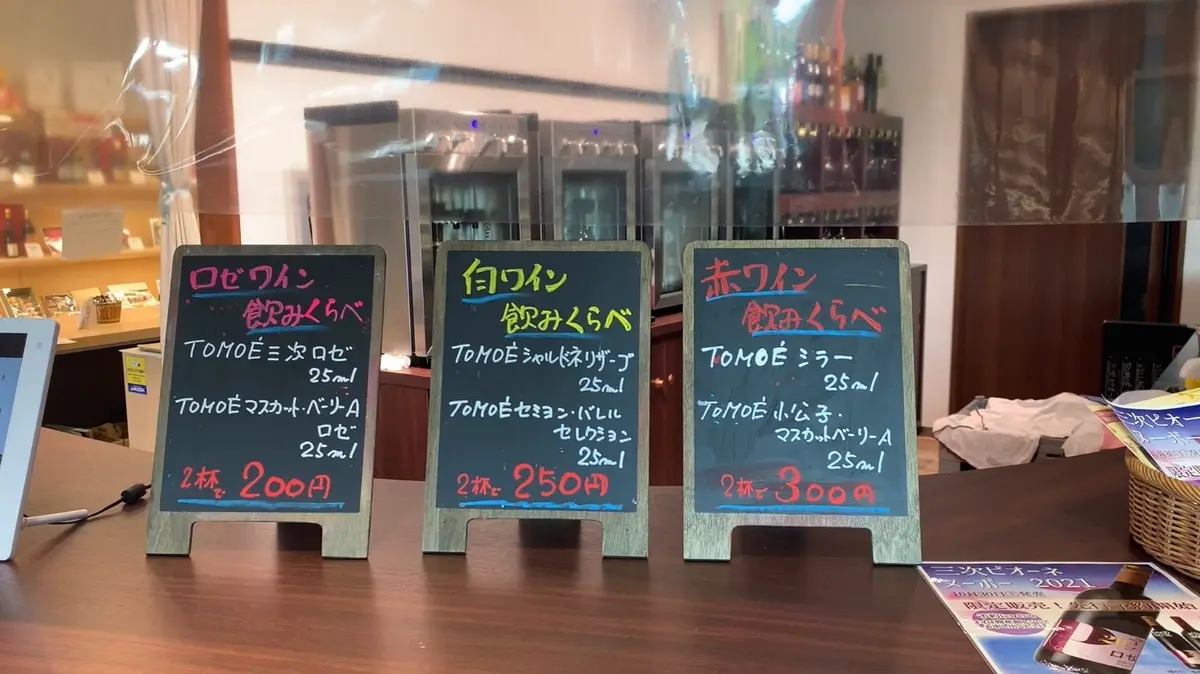 ロゼワイン
飲みくらべ
TOMOÉ三次ロゼ
25ml
TOMOÉマスカット・ベーリーA
ロゼ
25ml
2杯で200円
白ワイン
飲みくらべ
TOMOÉシャルドネリザーブ
25ml
TOMOÉセミヨン・バレル
セレクション
25ml
2杯で250円
赤ワイン
飲みくらべ
TOMOÉミラー
25ml
TOMOÉ小公子・
マスカットベーリーA
25ml
2杯で300円
三次ピオーネ
ヌーボー 2021
10月30日(土)発売
限定販売!
ロゼ
三次ピオーネ
ヌーボー